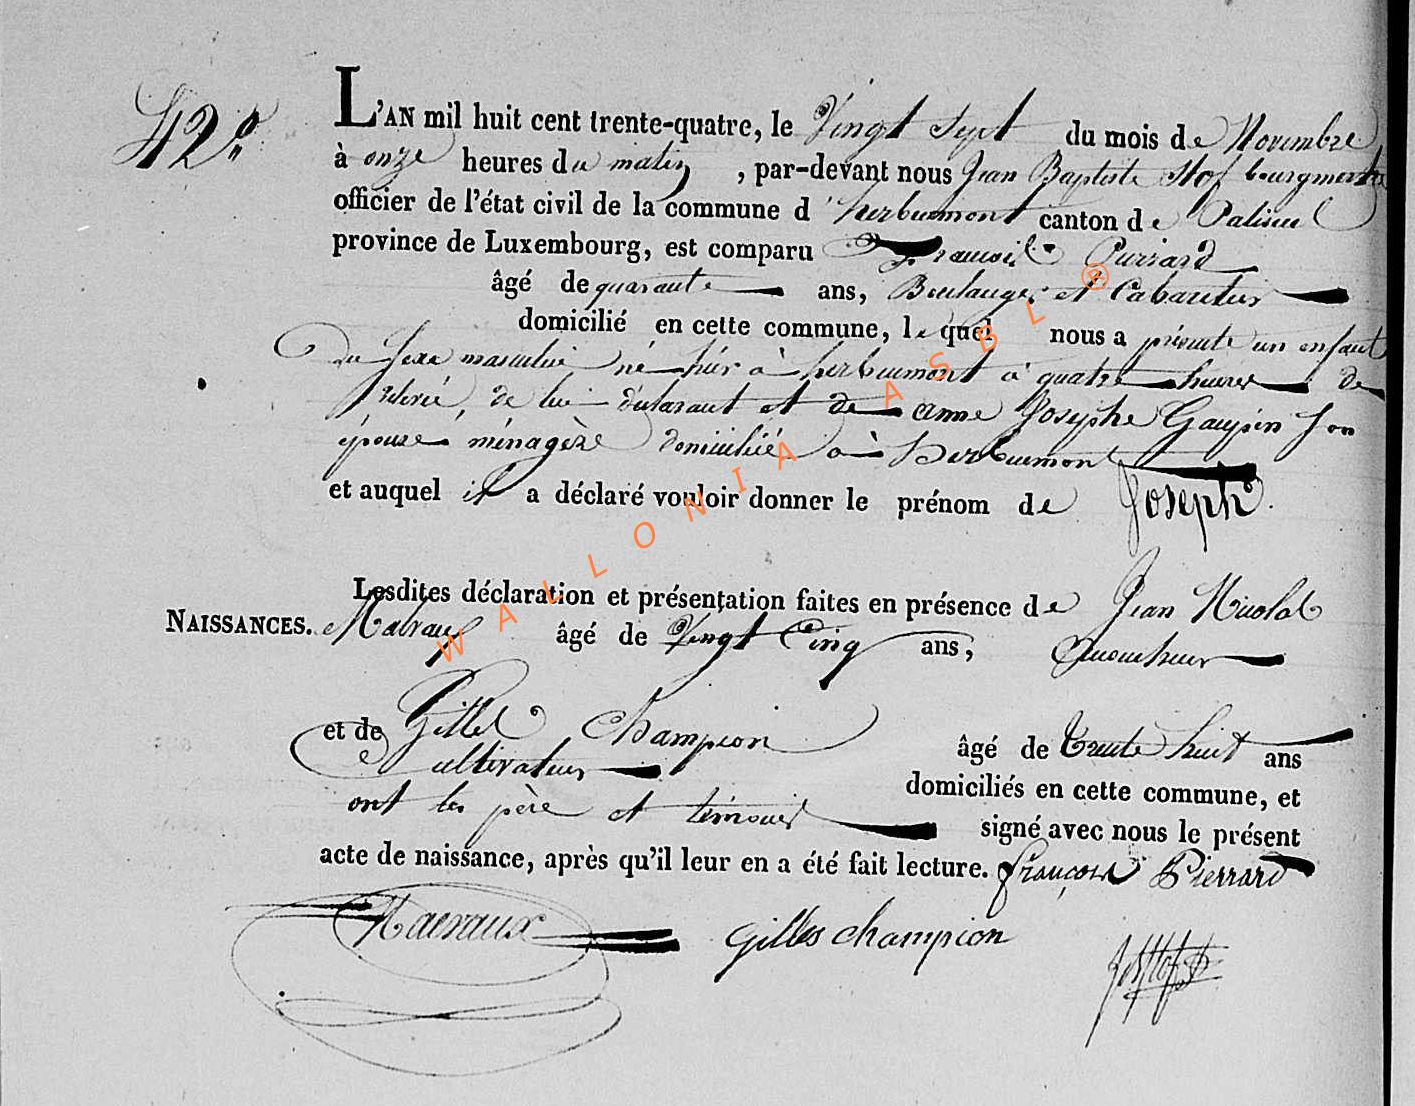 42e
L'AN mil huit cent trente-quatre, le Vingt Sept du mois de Novembre
à onze heures du matin, par-devant nous Jean Baptiste Hof bourgmestre
officier de l'état civil de la commune d'herbeumont canton de Paliseul
province de Luxembourg, est comparu François Pierrard
âgé de quarante ans, Boulanger et Cabaretier
domicilié en cette commune, lequel nous a présenté un enfant
du sexe masculin né hier à herbeumont à quatre heures de
relevée, de lui déclarant et de anne Josephe Gaupin Son
épouse ménagère domiciliée à herbeumont
et auquel il a déclaré vouloir donner le prénom de Joseph.
Lesdites déclaration et présentation faites en présence de Jean Nicolas
NAISSANCES. Malvaux âgé de Vingt Cinq ans,
et de Gilles Champion âgé de trente huit ans
Cultivateur domiciliés en cette commune, et
ont les père et témoins signé avec nous le présent
acte de naissance, après qu'il leur en a été fait lecture. François Pierrard
Gilles Champion
WALLONIA ASBL ®